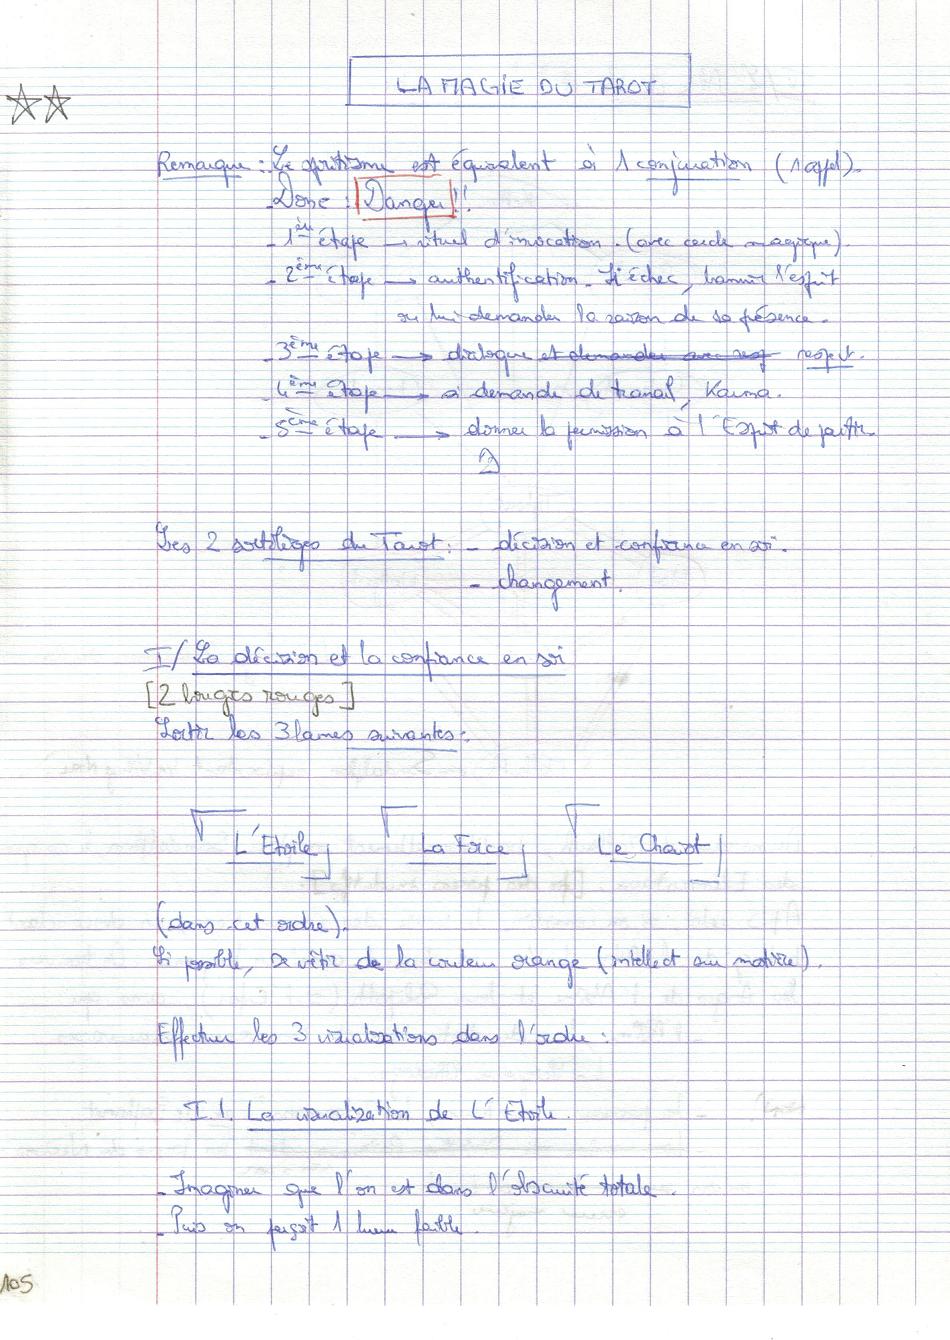 LA MAGIE DU TAROT
Remarque : Le spiritisme est équivalent à 1 conjuration (1 appel).
Donc : Danger !!
- 1ère étape → rituel d'invocation. (avec cercle magique).
- 2ème étape → authentification. Si échec, bannir l'esprit
ou lui demander la raison de sa présence.
- 3ème étape → dialogue et demander avec resp respect.
- 4ème étape → a demande de travail, Karma.
- 5ème étape → donner la permission à l'Esprit de partir.
Les 2 sortilèges du Tarot : - décision et confiance en soi.
- changement.
I/ La décision et la confiance en soi
[2 bougies rouges]
Sortir les 3 lames suivantes :
L'Etoile La Force Le Chariot
(dans cet ordre).
Si possible, se vêtir de la couleur orange (intellect sur matière).
Effectuer les 3 visualisations dans l'ordre :
I.1. La visualization de L'Etoile.
- Imaginer que l'on est dans l'obscurité totale.
- Puis on perçoit 1 lueur faible.
105